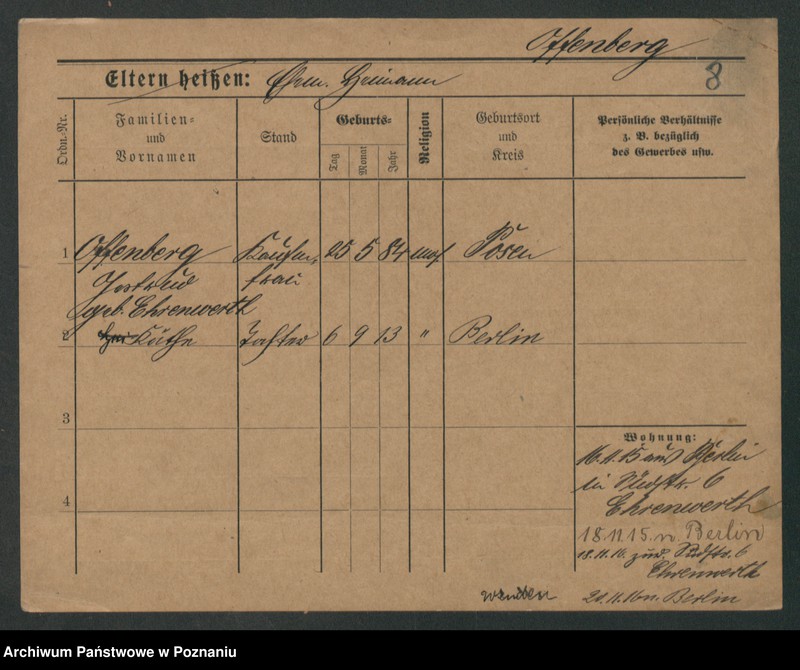 Offenberg
8
Eltern heißen: Ehem. Heimann
Ordn.-Nr.
Familien=
und
Vornamen
Stand
Geburts=
Tag
Monat
Jahr
Religion
Geburtsort
und
Kreis
Persönliche Verhältnisse
z. B. bezüglich
des Gewerbes usw.
1 Offenberg Kaufm. 25 5 84 mos Posen
frau
geb. Ehrenwerth
2 Käthe Tochter 6 9 13 " Berlin
3
4
Wohnung:
16.11.15 aus Berlin
6
Ehrenwerth
18.11.15. n. Berlin
18.11.16. zur. 6
Ehrenwerth
20.11.16 n. Berlin
wenden
Archiwum Państwowe w Poznaniu